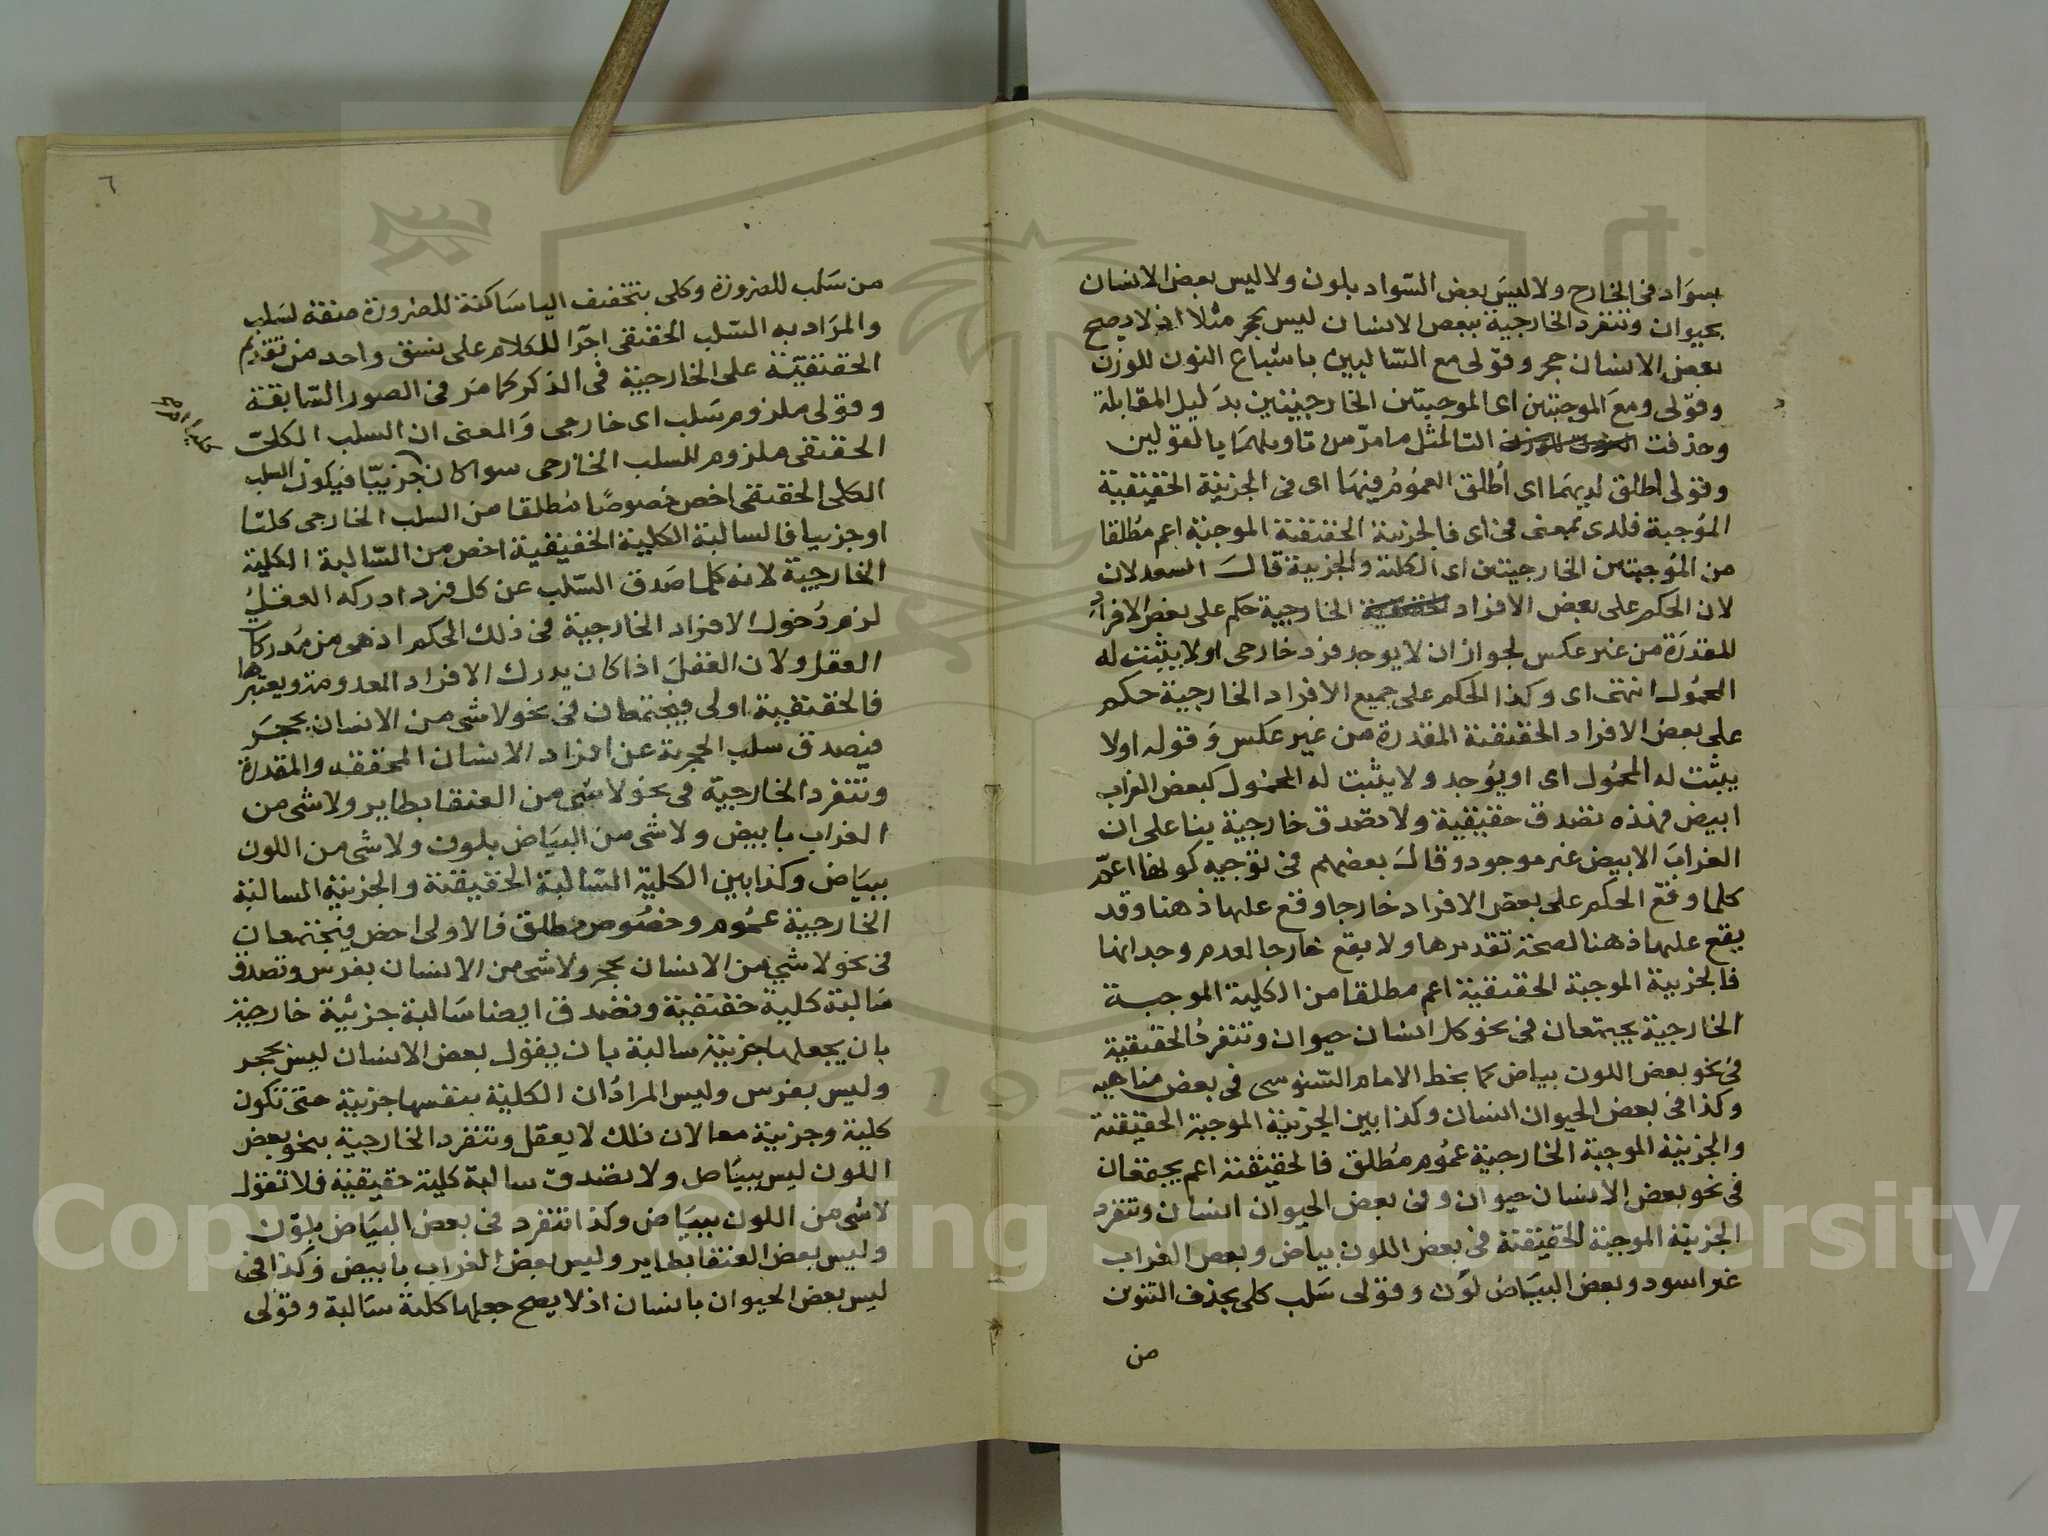 بسواد في الخارج ولا ليس بعض السواد بلون ولا ليس بعض الانسان
بحيوان وتنفرد الخارجية ببعض الانسان ليس بحجر مثلا اذ لا يصح
بعض الانسان حجر وقولي مع السالبين باشباع النون للوزن
وقولي ومع الموجبتين اى الموجبتين الخارجيتين بدليل المقابلة
وحذفت التا لمثل ما مر من تاويلهما بالقولين
وقولي اطلق لديهما اى اطلق العموم فيها اى في الجزئية الحقيقية
الموجبة فلدى بمعنى في اى فالجزئية الحقيقية الموجبة اعم مطلقا
من الموجبتين الخارجيتين اى الكلية والجزيية قال السعد لان
لان الحكم على بعض الافراد الخارجية حكم على بعض الافراد
المقدرة من غير عكس لجواز ان لا يوجد فرد خارجى او لا يثبت له
المحمول انتهى اى وكذا الحكم على جميع الافراد الخارجية حكم
على بعض الافراد الحقيقية المقدرة من غير عكس وقوله اولا
يثبت له المحمول اى او يوجد ولا يثبت له المحمول كبعض الغراب
ابيض فهذه تصدق حقيقية ولا تصدق خارجية بنا على ان
الغراب الابيض غير موجود وقال بعضهم في توجيه كونها اعم
كلما وقع الحكم على بعض الافراد خارجا وقع عليها ذهنا وقد
يقع عليها ذهنا لصحة تقديرها ولا يقع خارجا لعدم وجدانها
فالجزيية الموجبة الحقيقية اعم مطلقا من الكلية الموجبة
الخارجية يجتمعان في نحو كل انسان حيوان وتنفرد الحقيقية
في نحو بعض اللون بياض كما بخط الامام السنوسى في بعض مناهيه
وكذا في بعض الحيوان انسان وكذا بين الجزيية الموجبة الحقيقية
والجزيية الموجبة الخارجية عموم مطلق فالحقيقية اعم يجتمعان
في نحو بعض الانسان حيوان وفي بعض الحيوان انسان وتنفرد
الجزيية الموجبة الحقيقية في بعض اللون بياض وبعض الغراب
غير اسود وبعض البياض لون وقولى سلب كلى بحذف التنوين
من
٦
من سلب للضرورة وكلى بتخفيف اليا ساكنة للضرورة صفة لسلب
والمراد به السلب الحقيقى اجرا للكلام على نسق واحد من تقديم
الحقيقية على الخارجية في الذكر كما مر في الصور السابقة
وقولى ملزوم سلب اى خارجى والمعنى ان السلب الكلى
الحقيقى ملزوم للسلب الخارجى سوا كان جزييا فيكون السلب
الكلى الحقيقى اخص خصوصا مطلقا من السلب الخارجى كليا
او جزييا فالسالبة الكلية الحقيقية اخص من السالبة الكلية
الخارجية لانه كلما صدق السلب عن كل فرد ادركه العقل
لزم دخول الافراد الخارجية في ذلك الحكم اذ هى من مدركات
العقل ولان العقل اذا كان يدرك الافراد المعدومة ويعتبرها
فالحقيقية اولى فيجتمعان في نحو لا شى من الانسان بحجر
فيصدق سلب الحجرية عن افراد الانسان المحققة والمقدرة
وتنفرد الخارجية في نحو لا شى من العنقا بطاير ولا شى من
الغراب بابيض ولا شى من البياض بلون ولا شى من اللون
ببياض وكذا بين الكلية السالبة الحقيقية والجزيية السالبة
الخارجية عموم وخصوص مطلق فالاولى اخص فيجتمعان
في نحو لا شي من الانسان بحجر ولا شى من الانسان بفرس وتصدق
سالبة كلية حقيقية وتصدق ايضا سالبة جزئية خارجية
بان يجعلها جزيية سالبة بان يقول بعض الانسان ليس بحجر
وليس بفرس وليس المراد ان الكلية بنفسها جزيية حتى تكون
كلية وجزيية معا لان ذلك لا يعقل وتنفرد الخارجية بنحو بعض
اللون ليس ببياض ولا تصدق سالبة كلية حقيقية فلا تقول
لا شى من اللون ببياض وكذا تنفرد في بعض البياض بلون
وليس بعض العنقا بطاير وليس بعض الغراب بابيض وكذا في
ليس بعض الحيوان بانسان اذ لا يصح جعلها كلية سالبة وقولى
Copyright © King Saud University